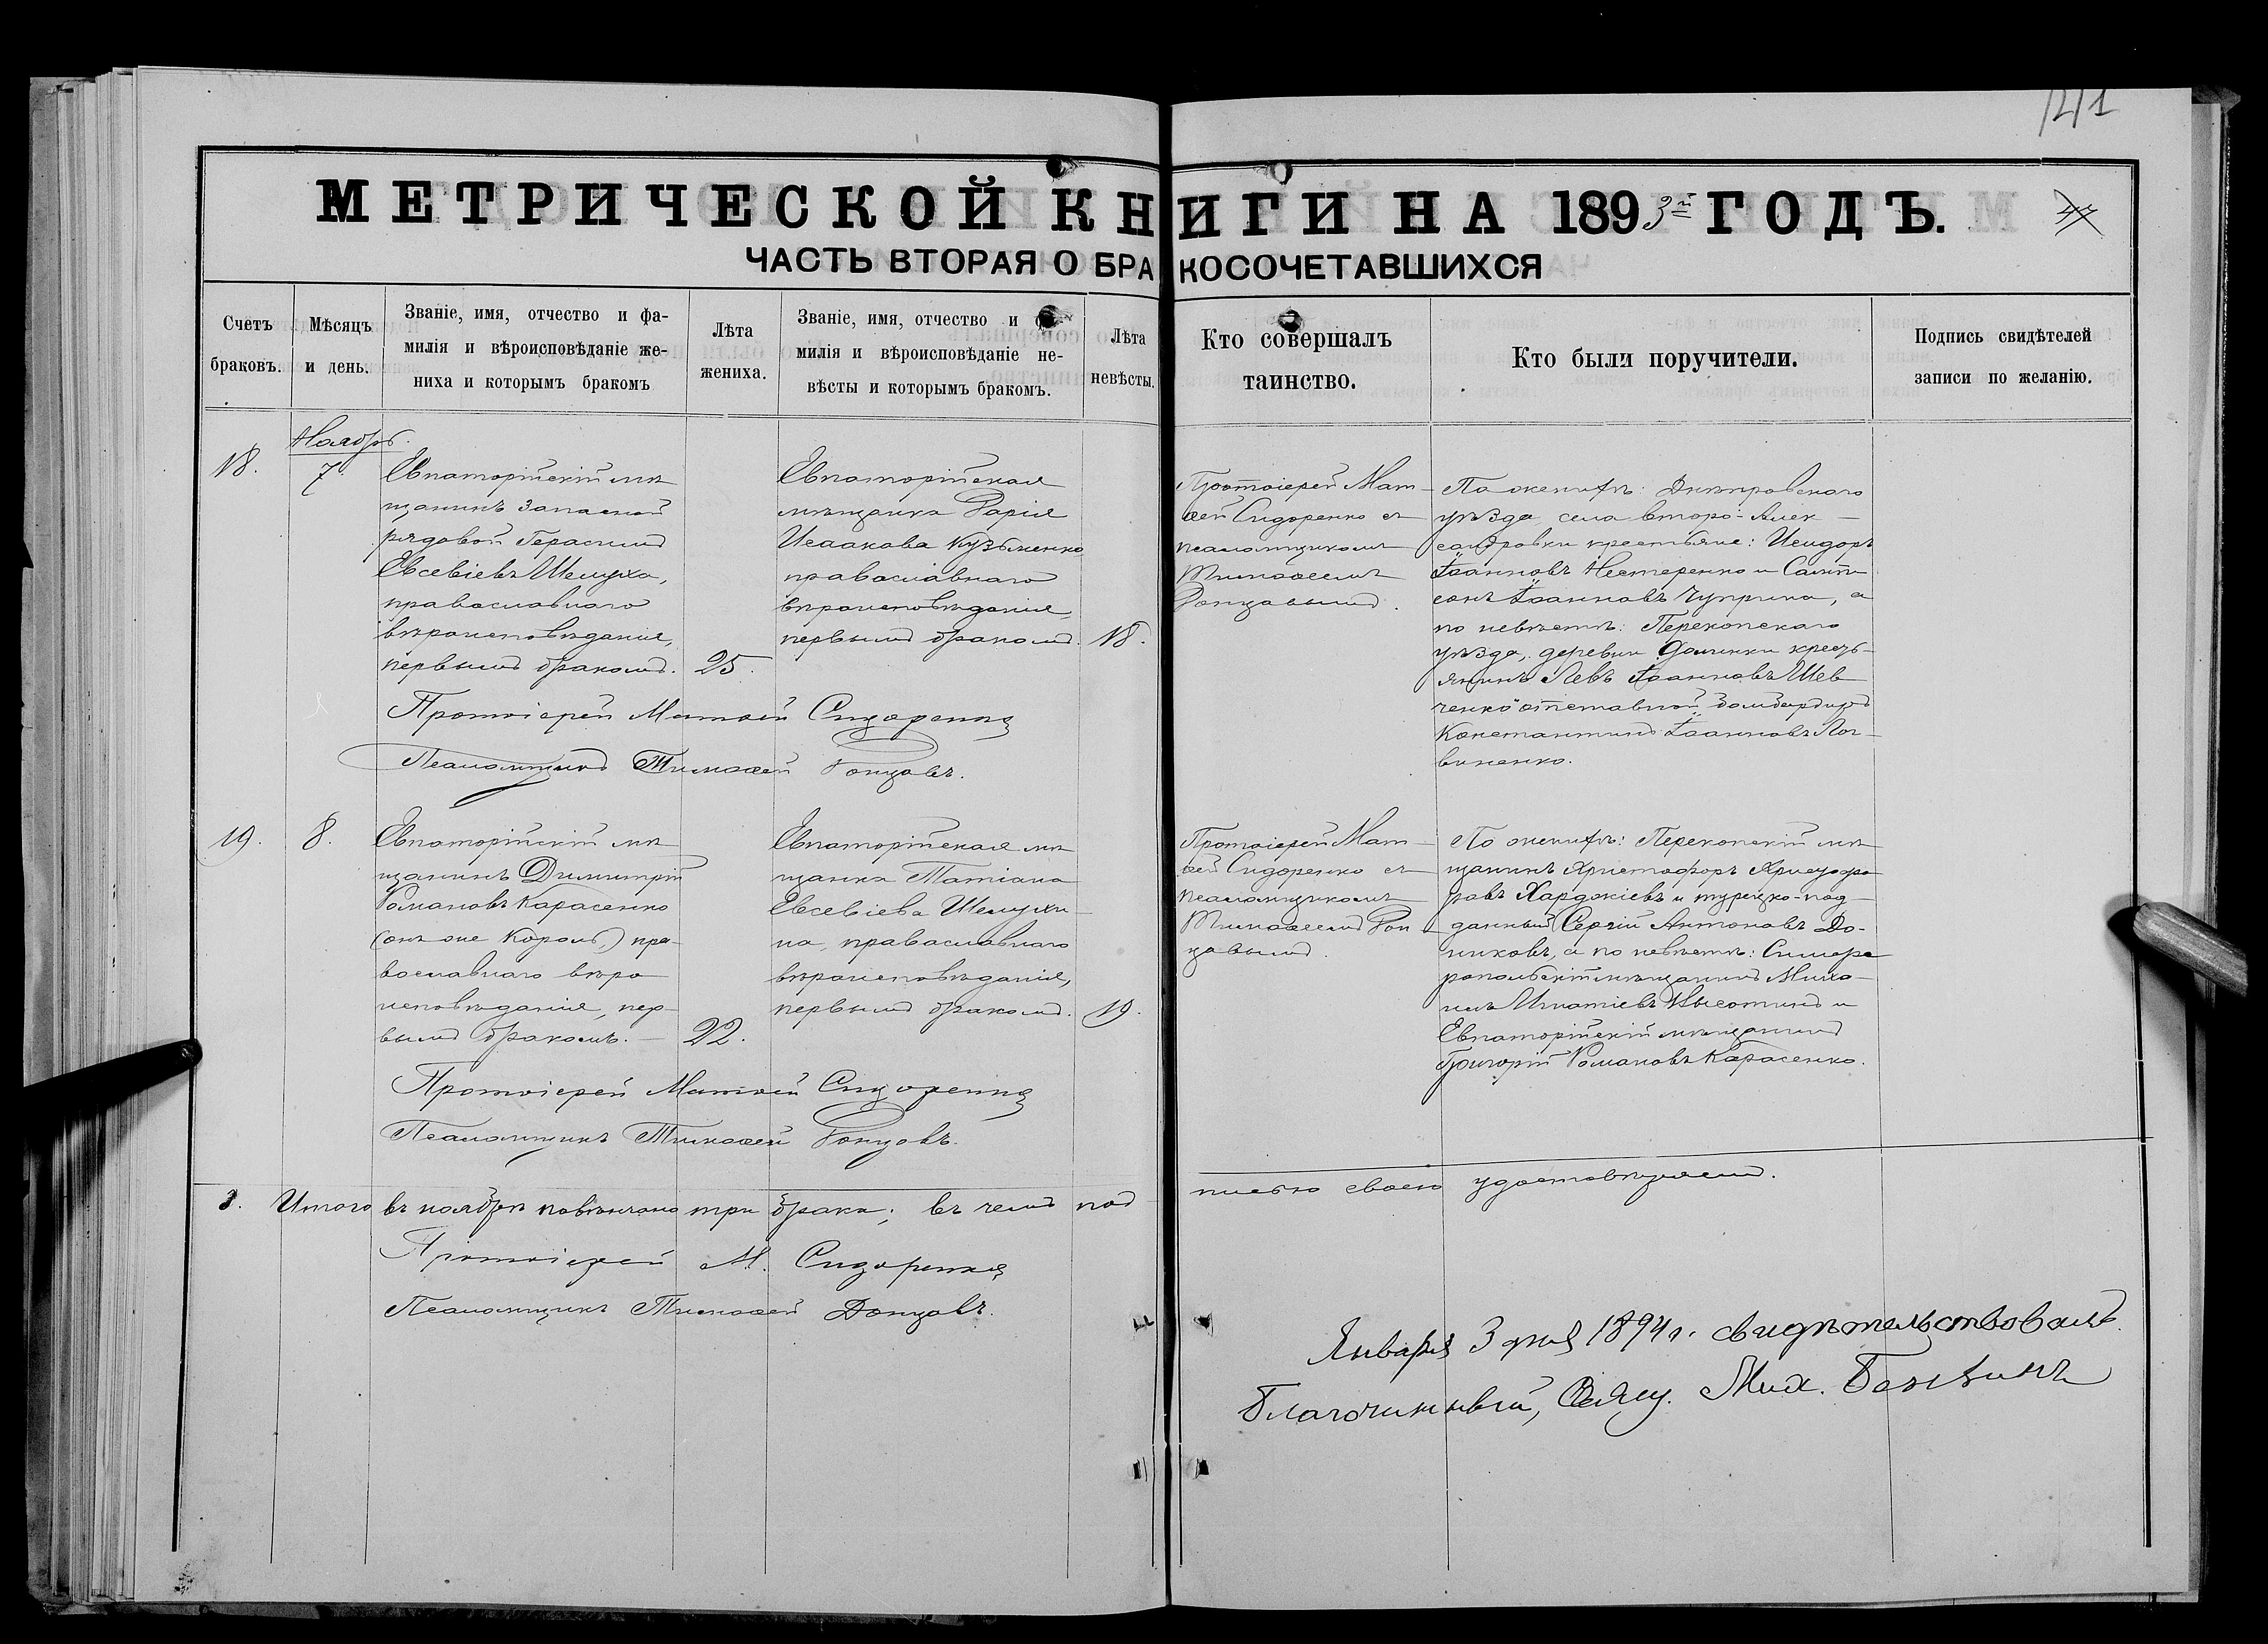 141
МЕТРИЧЕСКОЙ КНИГИ НА 1893й ГОДЪ.
47
ЧАСТЬ ВТОРАЯ О БРАКОСОЧЕТАВШИХСЯ
Счетъ браковъ.
Мѣсяцъ и день.
Званіе, имя, отчество и фа-
милія и вѣроисповѣданіе же-
ниха и которымъ бракомъ
Лѣта жениха.
Званіе, имя, отчество и фа-
милія и вѣроисповѣданіе не-
вѣсты и которымъ бракомъ.
Лѣта невѣсты.
Кто совершалъ
таинство.
Кто были поручители.
Подпись свидѣтелей
записи по желанію.
Ноябрь.
18.
7.
Евпаторійскій мѣ
щанинъ запасной
рядовой Герасимъ
Евсевіевъ Шелуха,
православнаго
вѣроисповѣданія,
первымъ бракомъ.
25.
Евпаторійская
мѣщанка Дарія
Исаакова Кузьменко
православнаго
вѣроисповѣданія,
первымъ бракомъ.
18.
Протоіерей Мат-
ѳей Сидоренко съ
псаломщикомъ
Тимоѳеемъ
Донцовымъ.
По женихѣ: Днѣпровскаго
уѣзда, села второ-Алек-
сандровки крестьяне: Исидоръ
Іоанновъ Нестеренко и Самп-
сонъ Іоанновъ Чуприна, а
по невѣстѣ: Перекопскаго
уѣзда, деревни Долинки кресть-
янинъ Левъ Іоанновъ Шев
ченко отставной бомбардиръ
Константинъ Іоанновъ Лог-
виненко.
Протоіерей Матѳей Сидоренко
Псаломщикъ Тимоѳей Донцовъ.
19.
8.
Евпаторійскій мѣ
щанинъ Димитрій
Романовъ Карасенко
(онъ же Король,) пра-
вославнаго вѣро
исповѣданія, пер-
вымъ бракомъ.
22.
Евпаторійская мѣ-
щанка Татіана
Евсевіева Шелухи-
на, православнаго
вѣроисповѣданія,
первымъ бракомъ.
19.
Протоіерей Мат-
ѳей Сидоренко съ
псаломщикомъ
Тимоѳеемъ Дон-
цовымъ.
По женихѣ: Перекопскій мѣ
щанинъ Христофоръ Христофо
ровъ Хардакіевъ и турецко-под-
данный Сергій Антоновъ До-
никовъ, а по невѣстѣ: Симфе
ропольскій мѣщанинъ Миха-
илъ Игнатіевъ Высотинъ и
Евпаторійскій мѣщанинъ
Григорій Романовъ Карасенко.
Протоіерей Матѳей Сидоренко
Псаломщикъ Тимоѳей Донцовъ.
3. Итого въ ноябрѣ повѣнчано три брака; въ чемъ подписью своею удостовѣряемъ.
Протоіерей М. Сидоренко
Псаломщикъ Тимоѳей Донцовъ.
Января 3 дня 1894 г. свидѣтельствовалъ
Благочинный, Свящ. Мих.